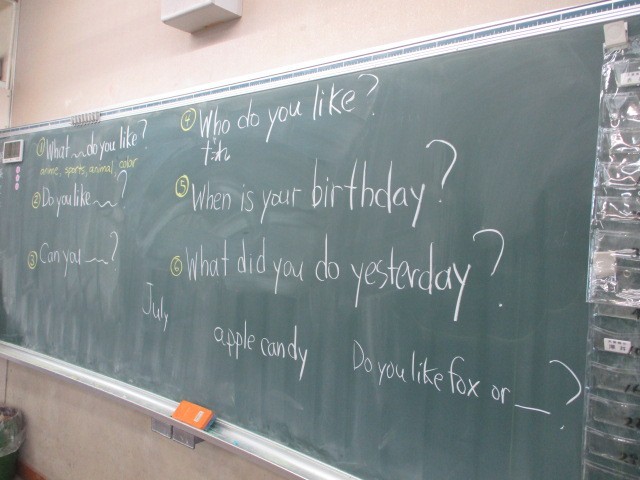 ① What ~ do you like?
anime, sports, animal, color
② Do you like ~?
③ Can you ~?
④ Who do you like?
だれ
⑤ When is your birthday?
⑥ What did you do yesterday?
July
apple candy
Do you like fox or __?